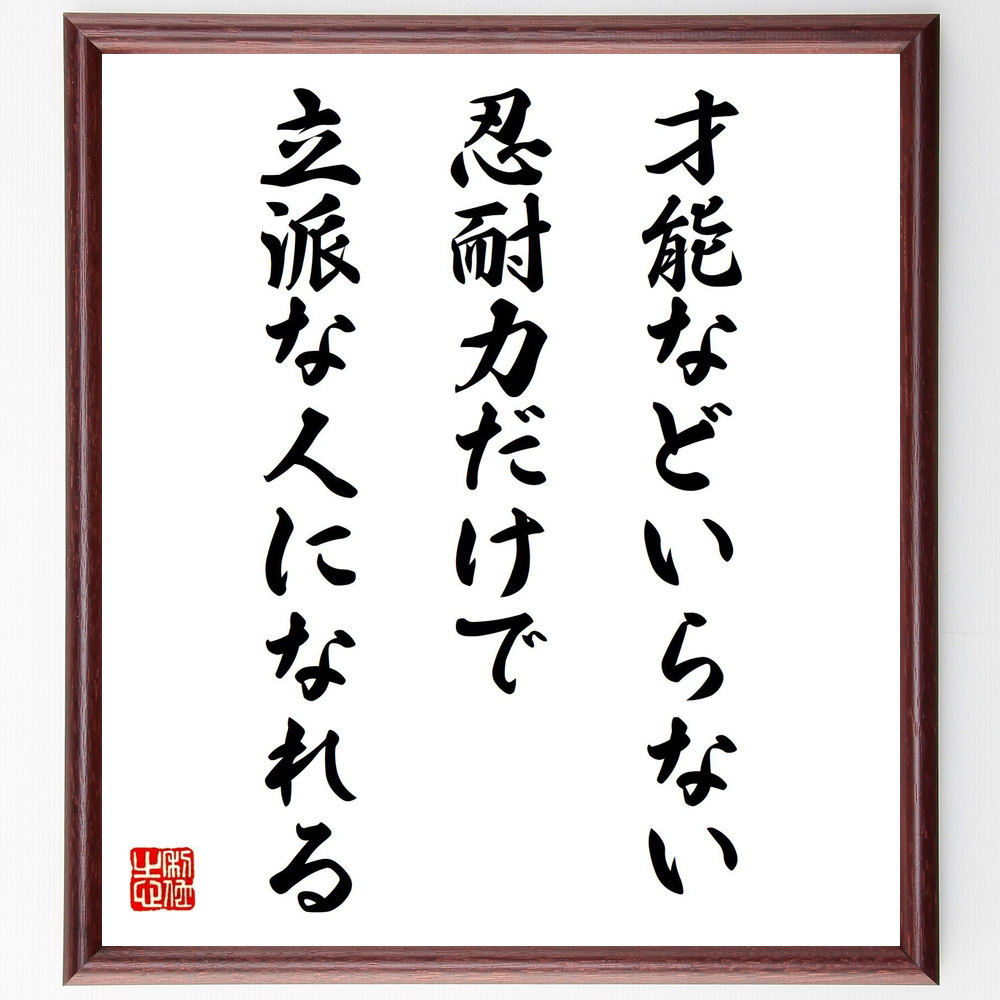 才能などいらない
忍耐力だけで
立派な人になれる